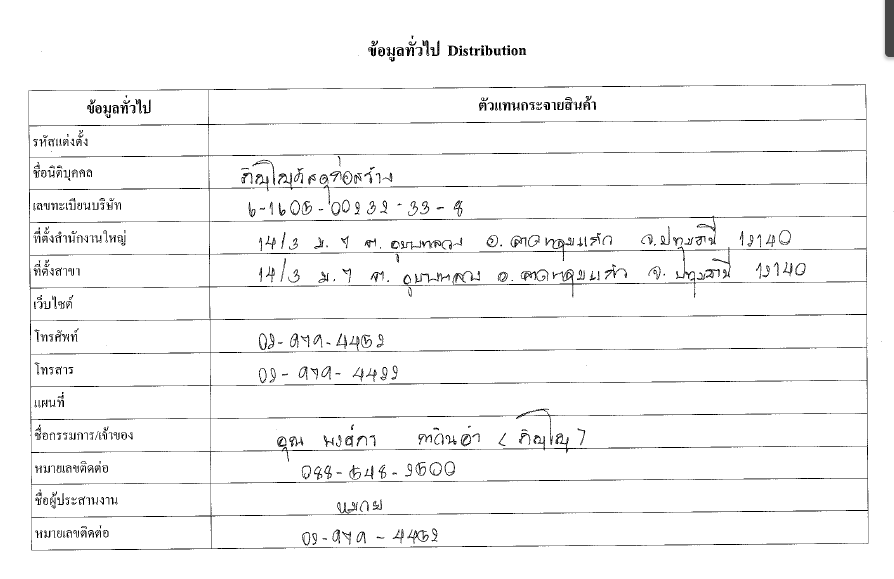 ข้อมูลทั่วไป Distribution
ข้อมูลทั่วไป ตัวแทนกระจายสินค้า
รหัสแต่งตั้ง
ชื่อนิติบุคคล ภิญโญวัสดุก่อสร้าง
เลขทะเบียนบริษัท 6-1605-00232-33-8
ที่ตั้งสำนักงานใหญ่ 14/3 ม. 7 ต. คูบางหลวง อ. ลาดหลุมแก้ว จ. ปทุมธานี 12140
ที่ตั้งสาขา 14/3 ม. 7 ต. คูบางหลวง อ. ลาดหลุมแก้ว จ. ปทุมธานี 12140
เว็บไซต์
โทรศัพท์ 02-979-4452
โทรสาร 02-979-4422
แผนที่
ชื่อกรรมการ/เจ้าของ คุณ (ภิญโญ)
หมายเลขติดต่อ 088-548-2500
ชื่อผู้ประสานงาน
หมายเลขติดต่อ 02-979-4452